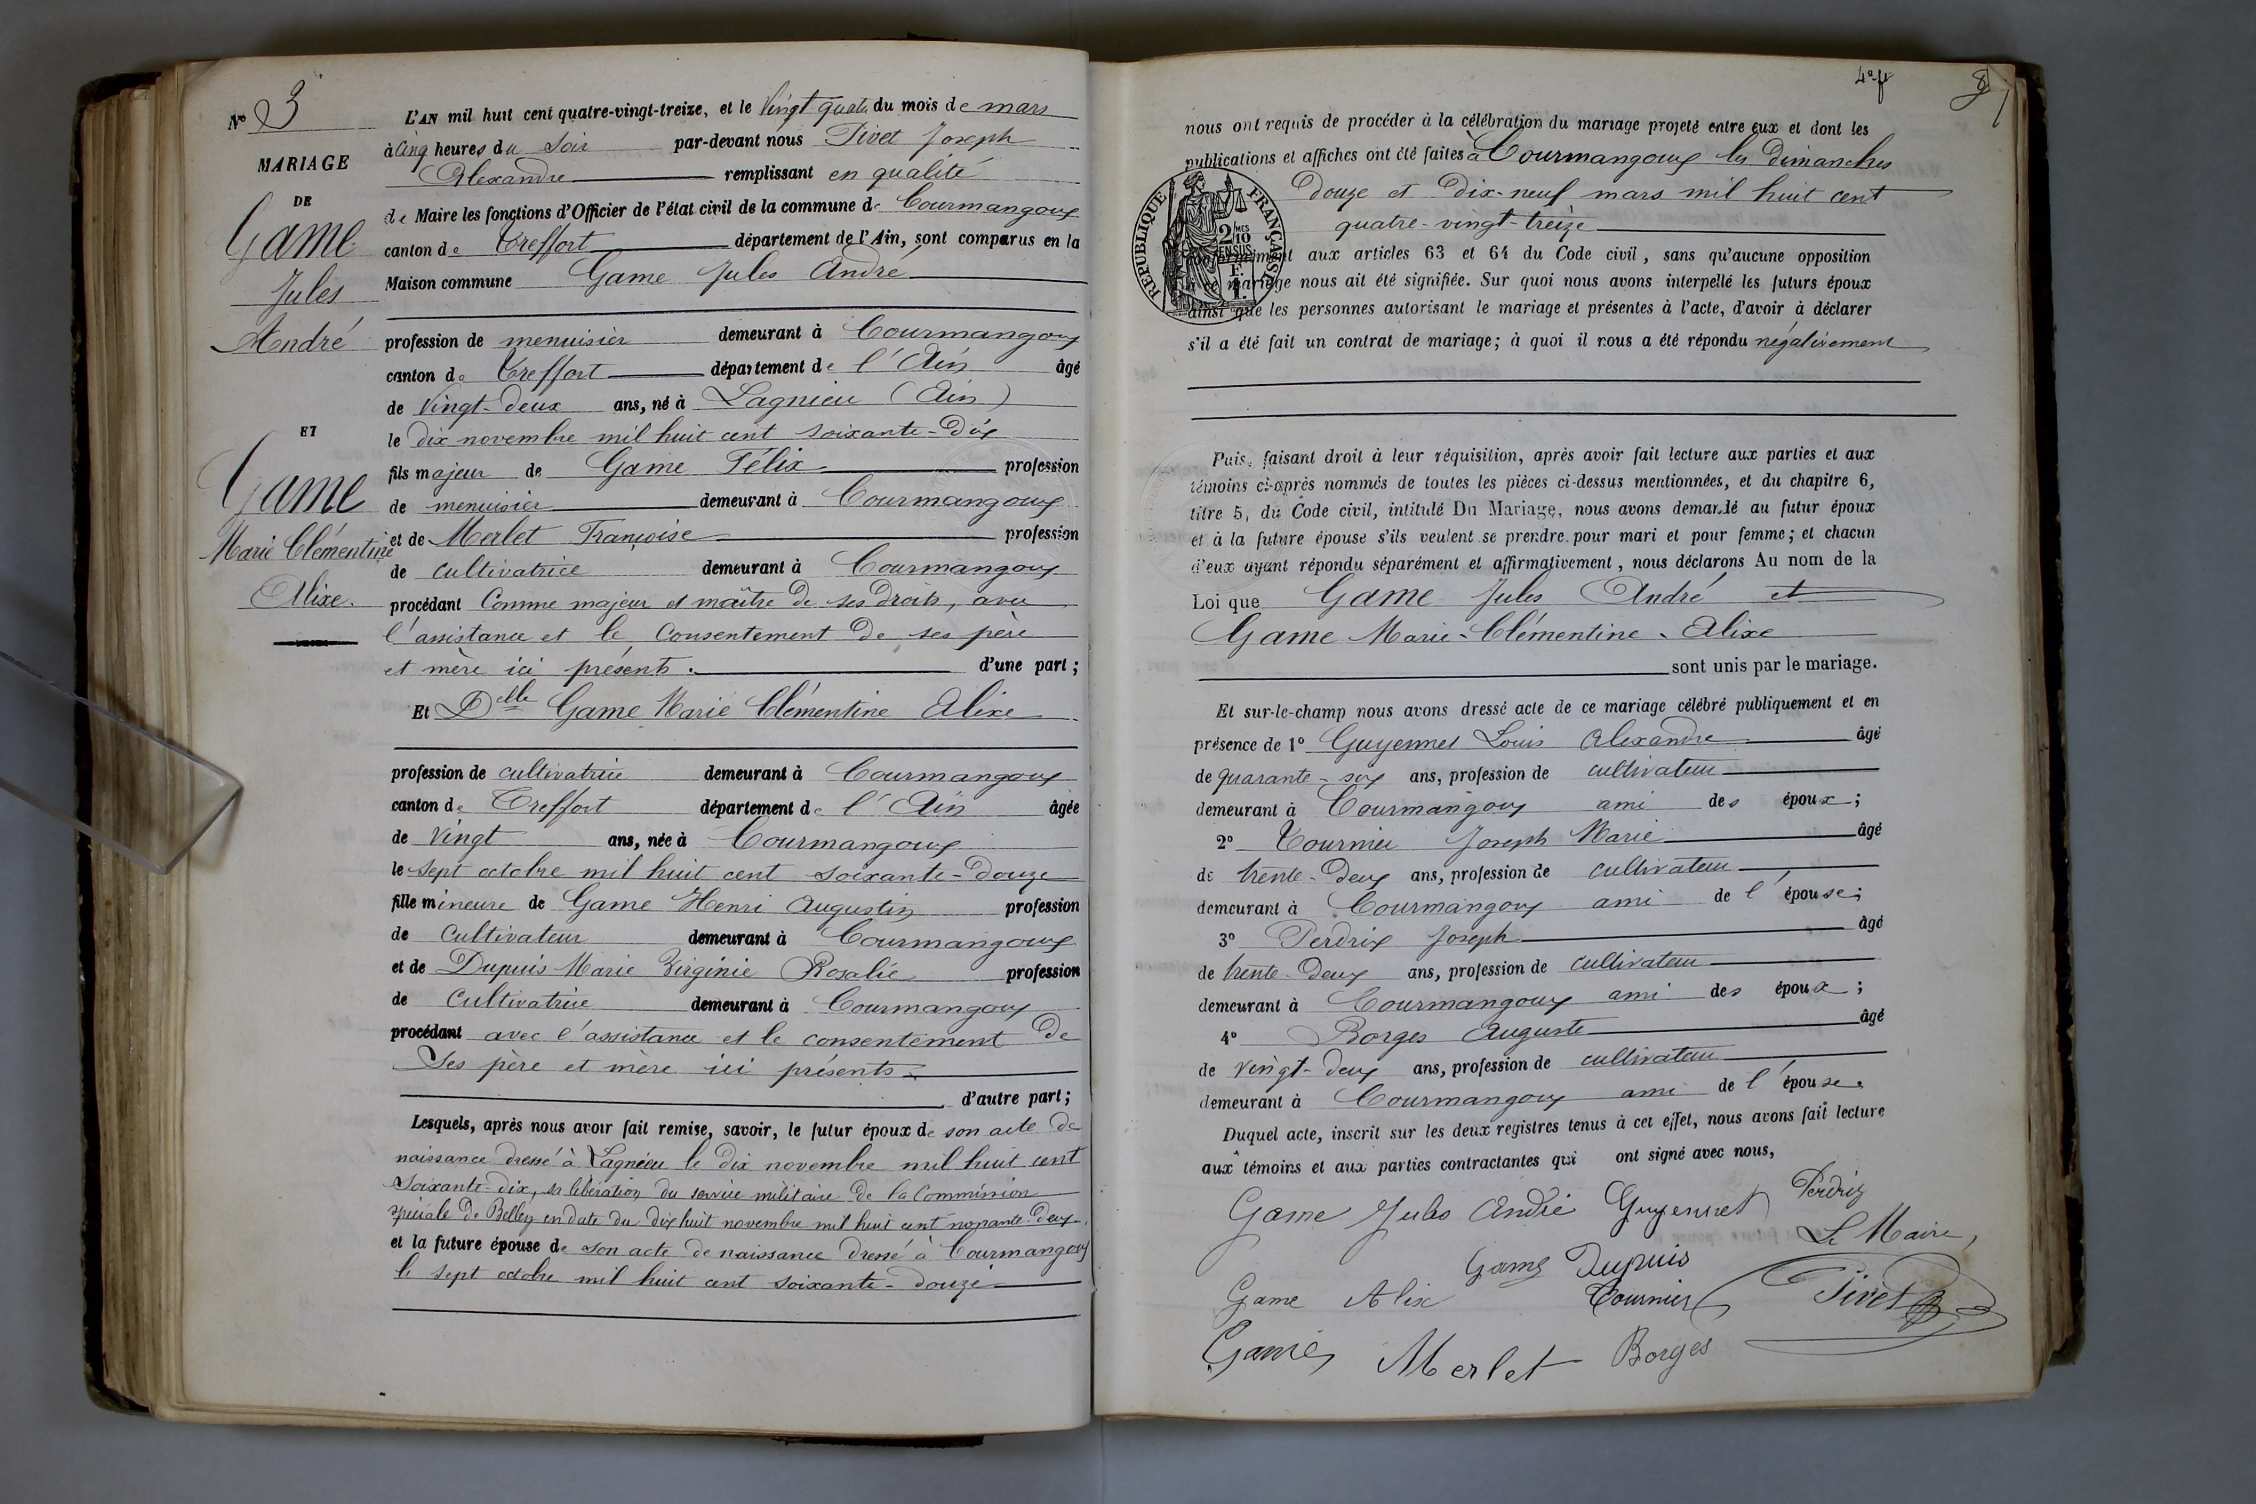 N° 3
MARIAGE
DE
Game
Jules
André
ET
Game
Marie Clémentine
Alixe.
L'AN mil huit cent quatre-vingt-treize, et le Vingt quatre du mois de mars
à cinq heures du Soir par-devant nous Pivet Joseph
Alexandre remplissant en qualité
de Maire les fonctions d'Officier de l'état civil de la commune de Courmangoux
canton de Treffort département de l'Ain, sont comparus en la
Maison commune Game Jules André
profession de menuisier demeurant à Courmangoux
canton de Treffort département de l'Ain âgé
de Vingt-deux ans, né à Lagnieu (Ain)
le dix novembre mil huit cent soixante-dix
fils majeur de Game Félix profession
de menuisier demeurant à Courmangoux
et de Merlet Françoise profession
de cultivatrice demeurant à Courmangoux
procédant Comme majeur et maître de ses droits, avec
l'assistance et le Consentement de ses père
et mère ici présents. d'une part ;
Et Delle Game Marie Clémentine Alixe
profession de cultivatrice demeurant à Courmangoux
canton de Treffort département de l'Ain âgée
de Vingt ans, née à Courmangoux
le sept octobre mil huit cent soixante-douze
fille mineure de Game Henri Augustin profession
de Cultivateur demeurant à Courmangoux
et de Dupuis Marie Virginie Rosalie profession
de Cultivatrice demeurant à Courmangoux
procédant avec l'assistance et le consentement de
Ses père et mère ici présents.
d'autre part ;
Lesquels, après nous avoir fait remise, savoir, le futur époux de son acte de
naissance dressé à Lagnieu le dix novembre mil huit cent
Soixante-dix, sa libération du service militaire de la Commission
spéciale de Belley en date du dix huit novembre mil huit cent nonante deux,
et la future épouse de son acte de naissance dressé à Courmangoux
le sept octobre mil huit cent soixante-douze
4e f
8
nous ont requis de procéder à la célébration du mariage projeté entre eux et dont les
publications et affiches ont été faites à Courmangoux les dimanches
Douze et Dix-neuf mars mil huit cent
quatre-vingt-treize
RÉPUBLIQUE FRANÇAISE
2/10 MES
EN SUS
F.
1.
aux articles 63 et 64 du Code civil, sans qu'aucune opposition
mariage nous ait été signifiée. Sur quoi nous avons interpellé les futurs époux
ainsi que les personnes autorisant le mariage et présentes à l'acte, d'avoir à déclarer
s'il a été fait un contrat de mariage; à quoi il nous a été répondu négativement
Puis, faisant droit à leur réquisition, après avoir fait lecture aux parties et aux
témoins ci-après nommés de toutes les pièces ci-dessus mentionnées, et du chapitre 6,
titre 5, du Code civil, intitulé Du Mariage, nous avons demandé au futur époux
et à la future épouse s'ils veulent se prendre pour mari et pour femme; et chacun
d'eux ayant répondu séparément et affirmativement, nous déclarons Au nom de la
Loi que Game Jules André et
Game Marie-Clémentine-Alixe
sont unis par le mariage.
Et sur-le-champ nous avons dressé acte de ce mariage célébré publiquement et en
présence de 1° Guyennet Louis Alexandre âgé
de quarante-six ans, profession de cultivateur
demeurant à Courmangoux ami des époux ;
2° Tournier Joseph Marie âgé
de trente-deux ans, profession de cultivateur
demeurant à Courmangoux ami de l'épouse ;
3° Perdrix Joseph âgé
de trente-deux ans, profession de cultivateur
demeurant à Courmangoux ami des époux ;
4° Borges Auguste âgé
de vingt-deux ans, profession de cultivateur
demeurant à Courmangoux ami de l'épouse.
Duquel acte, inscrit sur les deux registres tenus à cet effet, nous avons fait lecture
aux témoins et aux parties contractantes qui ont signé avec nous,
Game Jules André Guyennet Perdrix
Le Maire,
Game Dupuis
Game Alix Tournier Pivet
Game Merlet Borges